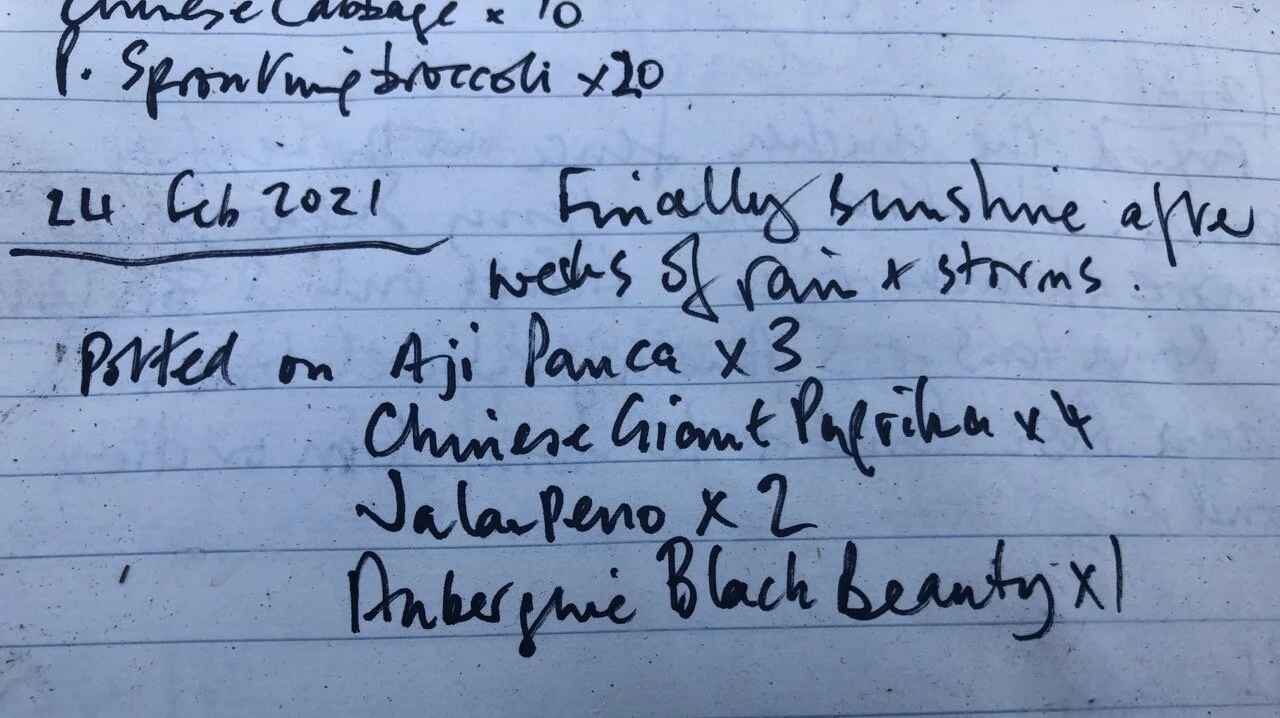 Chinese Cabbage x 10
P. Sprouting broccoli x20
24 Feb 2021 Finally sunshine after
weeks of rain x storms.
Potted on Aji Panca x 3
Chinese Giant Paprika x 4
Jalapeno x 2
Aubergine Black Beauty x1